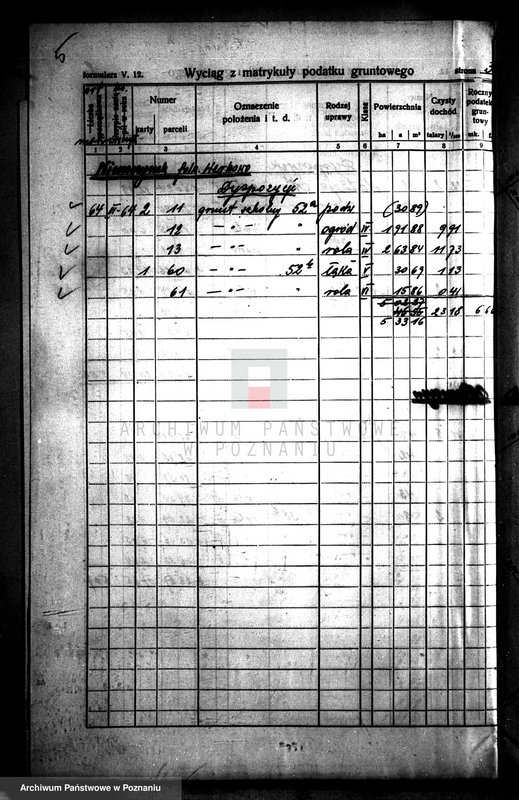 6
formularz V. 12. Wyciąg z matrykuły podatku gruntowego strona
Numer
karty parceli
Oznaczenie położenia i t. d.
Rodzaj uprawy
Klasa
Powierzchnia
ha a m²
Czysty dochód
talary 1/100
Roczny podatek gruntowy
mk. f.
1 2 3 4 5 6 7 8 9
Dyspozycji
64 II-64 2 11 grunt szkolny 52a podw (30 89)
12 — „ — „ ogród III 1 91 88 9 91
13 — „ — „ rola IV 2 63 84 11 73
1 60 — „ — 52b łąka V 30 69 1 13
61 — „ — „ rola VI 15 86 0 41
5 02 27
23 18 6 66
5 33 16
ARCHIWUM PAŃSTWOWE
W POZNANIU
Archiwum Państwowe w Poznaniu